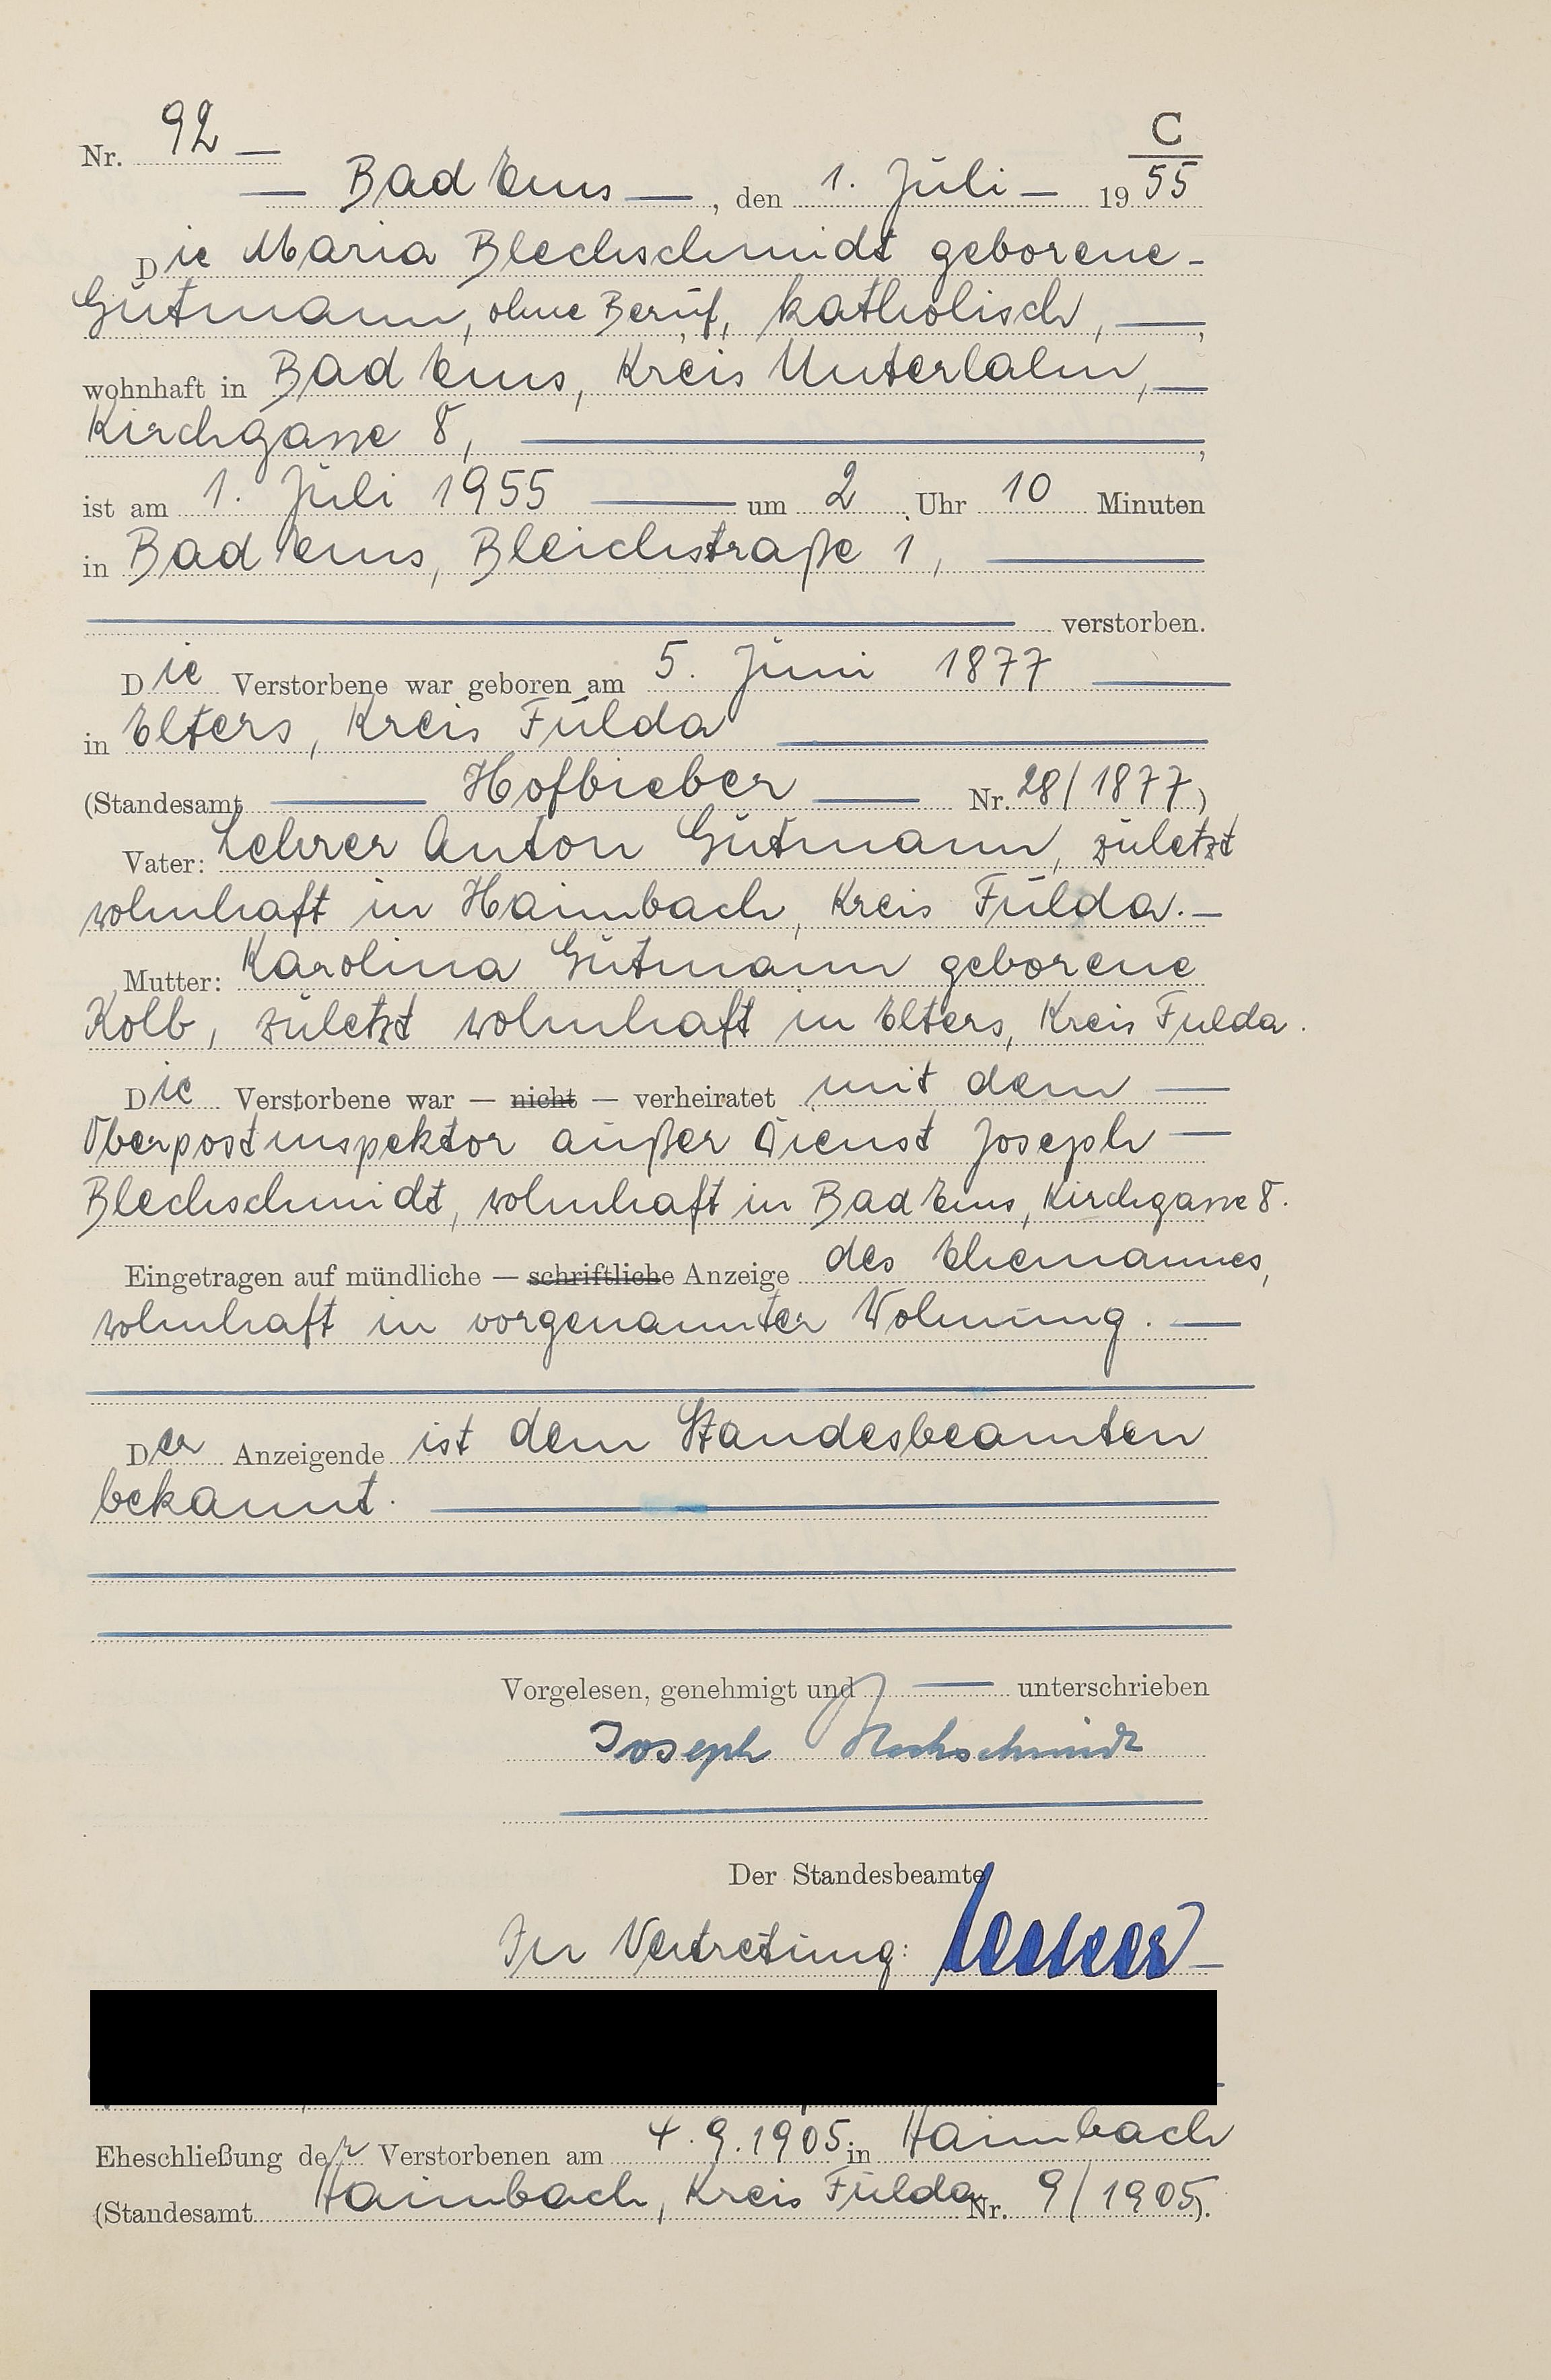 C
Nr. 92 —
— Bad Ems —, den 1. Juli — 1955
Die Maria Blechschmidt geborene -
Gutmann, ohne Beruf, katholisch, —,
wohnhaft in Bad Ems, Kreis Unterlahn, —
Kirchgasse 8, —,
ist am 1. Juli 1955 — um 2 Uhr 10 Minuten
in Bad Ems, Bleichstraße 1, —
— verstorben.
Die Verstorbene war geboren am 5. Juni 1877 —
in Elters, Kreis Fulda —
(Standesamt — Hofbieber — Nr. 28/1877)
Vater: Lehrer Anton Gutmann, zuletzt
wohnhaft in Haimbach, Kreis Fulda. —
Mutter: Karolina Gutmann geborene
Kolb, zuletzt wohnhaft in Elters, Kreis Fulda.
Die Verstorbene war — nicht — verheiratet mit dem —
Oberpostinspektor außer Dienst Joseph —
Blechschmidt, wohnhaft in Bad Ems, Kirchgasse 8.
Eingetragen auf mündliche — schriftliche Anzeige des Ehemannes,
wohnhaft in vorgenannter Wohnung. —
Der Anzeigende ist dem Standesbeamten
bekannt. —
Vorgelesen, genehmigt und — unterschrieben
Joseph Blechschmidt
Der Standesbeamte
In Vertretung:
Eheschließung der Verstorbenen am 4.9.1905 in Haimbach
(Standesamt Haimbach, Kreis Fulda Nr. 9/1905).